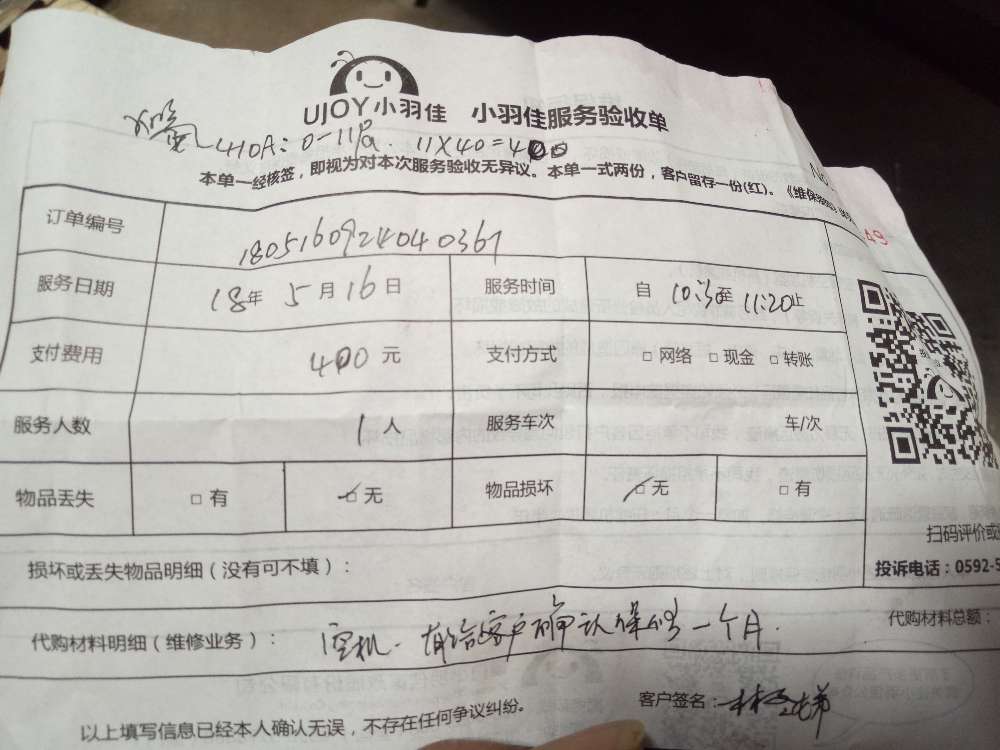 UJOY小羽佳 小羽佳服务验收单
410A: 0-11Pa. 11X40=400
本单一经核签，即视为对本次服务验收无异议。本单一式两份，客户留存一份(红)。《维保
No
49
订单编号 180516092404036
服务日期 18年 5月16日 服务时间 自 10:30至 11:20止
支付费用 400元 支付方式 □ 网络 □ 现金 □ 转账
服务人数 1人 服务车次 车/次
物品丢失 □ 有 □ 无 物品损坏 □ 无 □ 有
扫码评价或
损坏或丢失物品明细（没有可不填）：
投诉电话：0592-5
代购材料明细（维修业务）： 空机. 有给客户确认保修一个月.
代购材料总额：
以上填写信息已经本人确认无误，不存在任何争议纠纷。 客户签名：